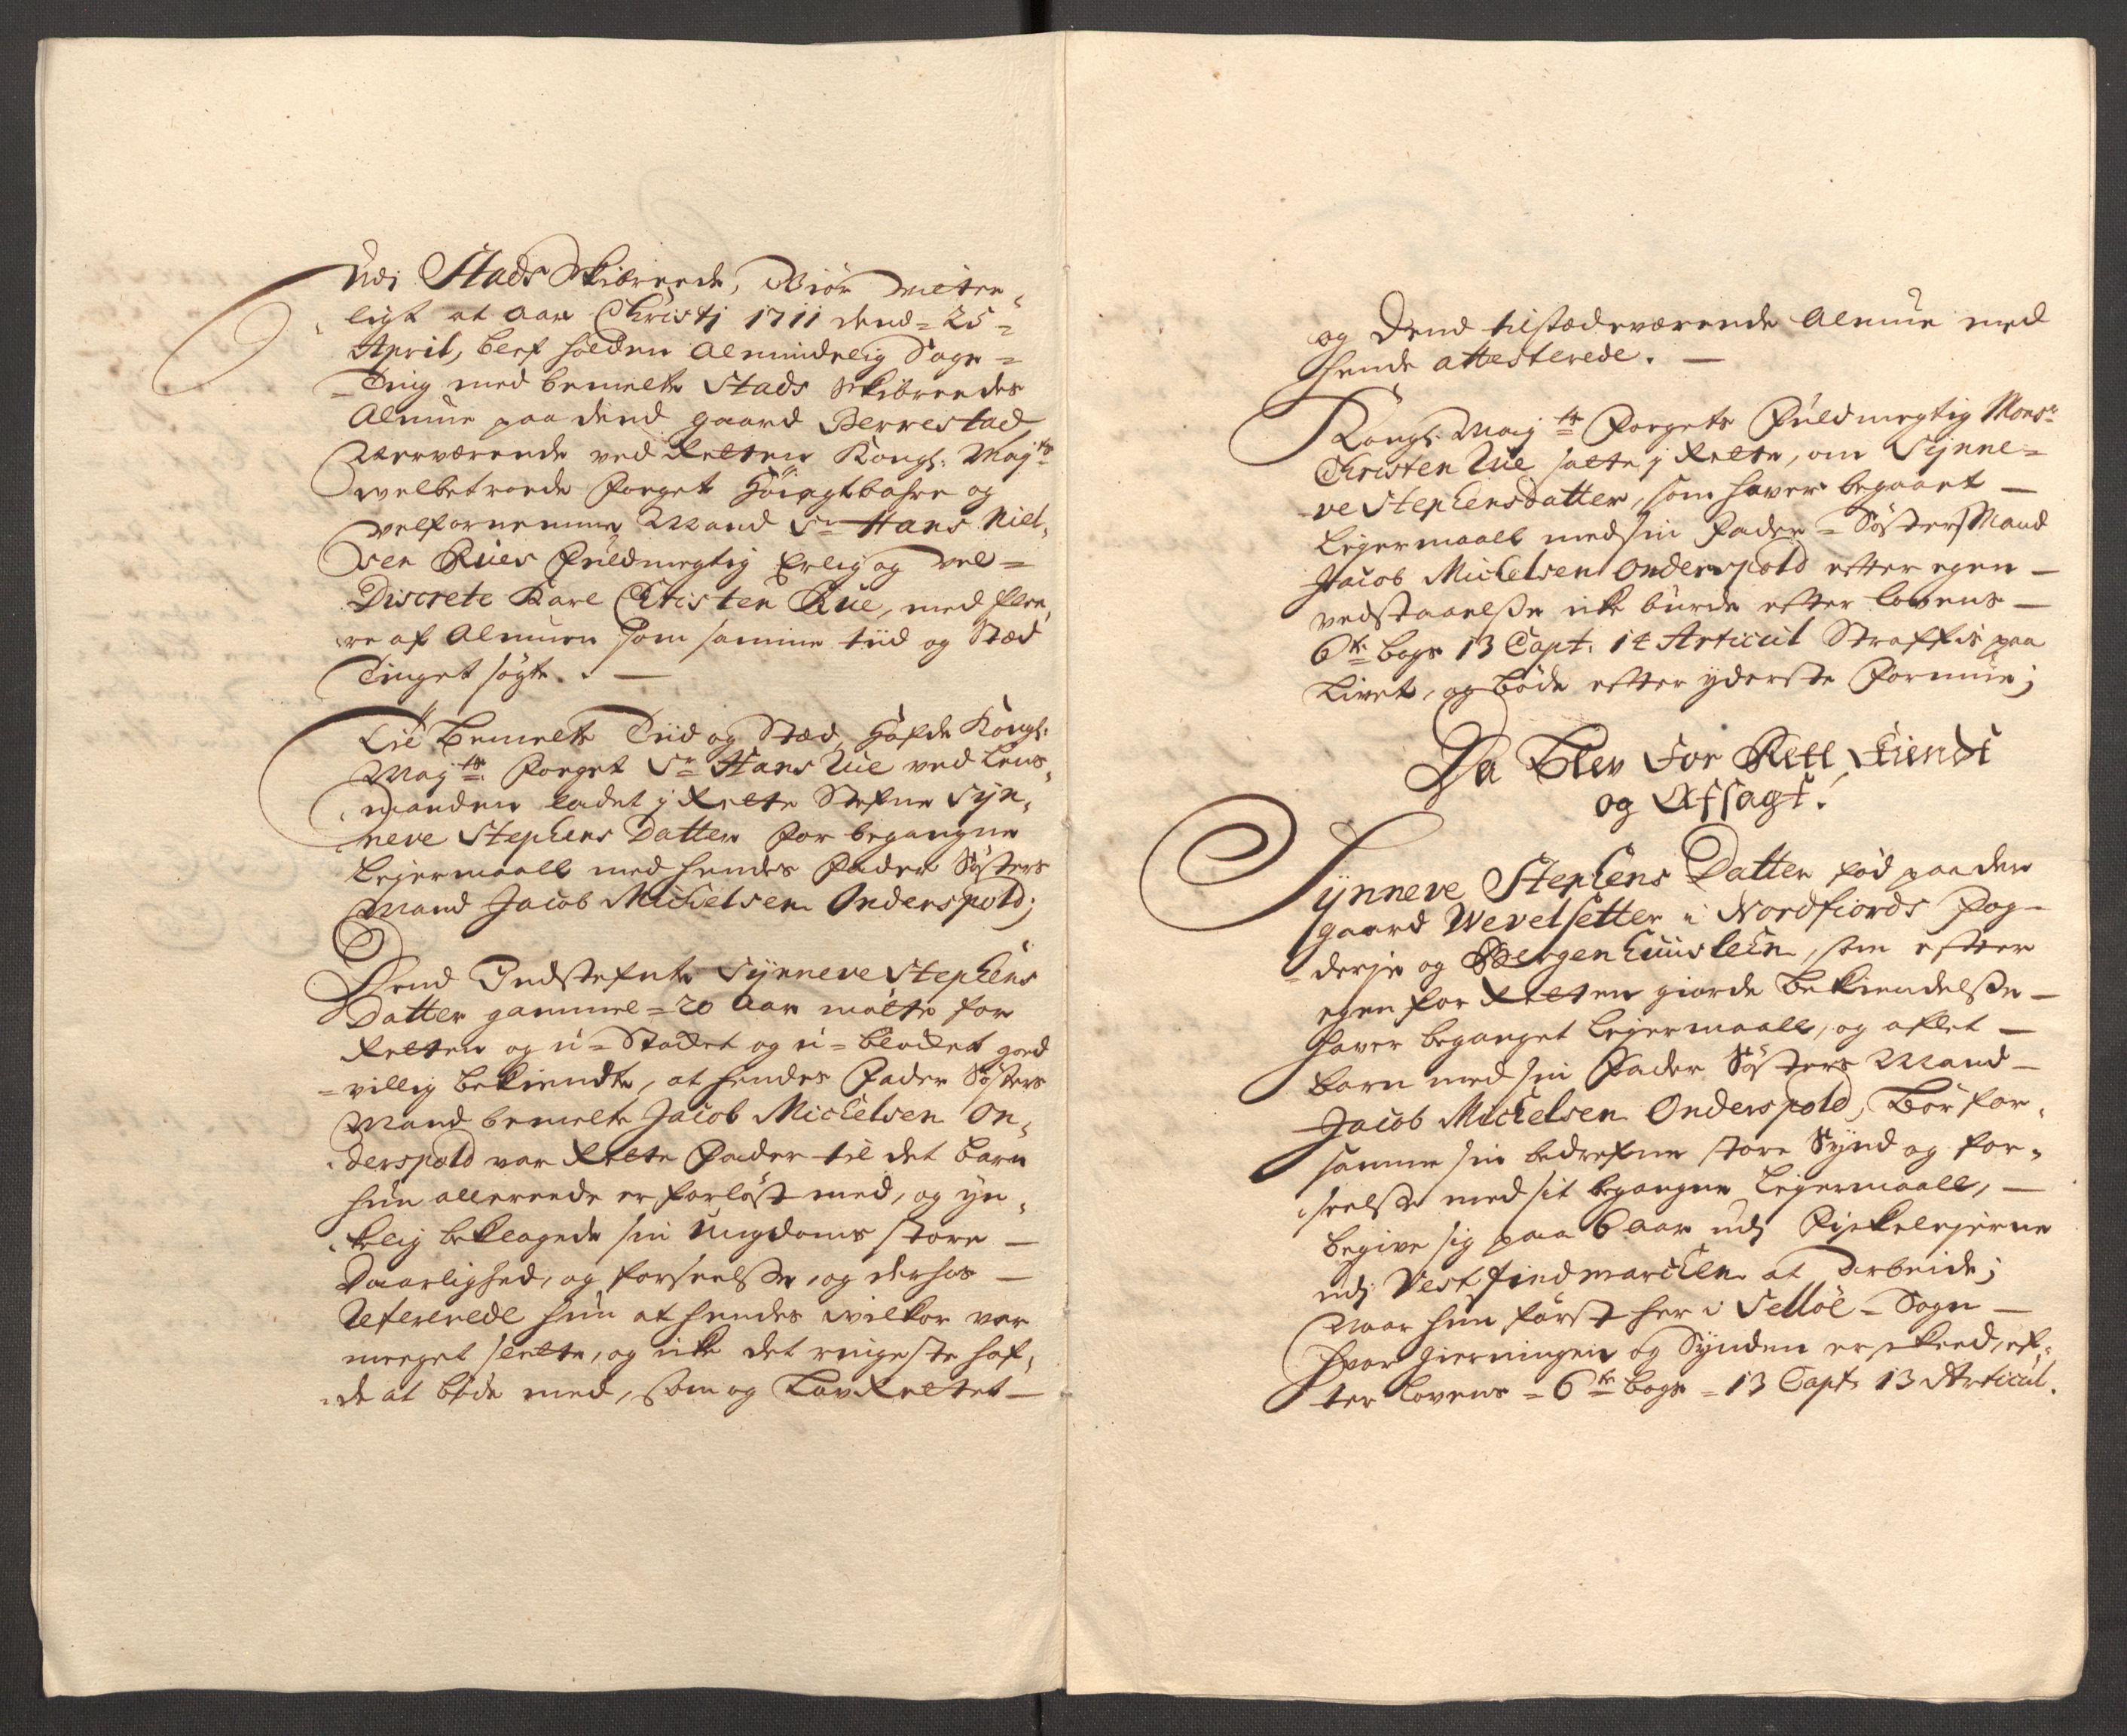 Udj Stads Skibreede, Giör vitter-
ligt at Aar Christj 1711 dend = 25 =
April, blef holden Almindelig Sage =
= Ting med bemelte Stads Skibreedes
Almue paa dend gaard Berrestad,
Nærværende ved Retten Kongl: Majts
velbetroede Foget Höiagtbahre og
velfornemme Mand Sr Hans Niel-
sen Rües Fuldmegtig Erlig og vel =
Discrete Karl Christen Rüe, med flee-
re af Almuen som samme tiid og Stæd
Tinget søgte. —
Til Bemelte Tiid og Stæd, Hafde Kongl:
Majts Foget Sr Hans Rüe ved Lens-
manden ladet j Rette Stefne Syn-
neve Stephens Datter for begangne
Leyermaall med hendes Fader Søsters
Mand Jacob Michelsen Onderspold;
Dend Indstefnte Synneve Stephens
Datter gammel = 20 Aar mötte for
Retten og u = Stocket og u = blocket goed
= villig bekiendte, at hendes Fader Søsters
Mand bemelte Jacob Michelsen On-
derspold var Rette Fader til det barn
hun allereede er forlöst med, og yn-
kelig beklagede sin Ungdoms store —
Daarlighed, og forseelse, og derhos —
Refererede hun at hendes vilkor var
meeget slette, og icke det ringeste haf-
de at böde med, som og LavRettet —
og Dend tilstædeværende Almue med
hende attesterede. —
Kongl: Majts Fogets Fuldmegtig Monsr
Christen Rüe satte j Rette, om Synne =
ve Stephensdatter, som haver begaaet —
Leyermaall med sin Fader = SøstersMand
Jacob Michelsen Onderspold efter egen —
vedstaaelse icke burde efter lovens —
6te bogs 13 Capt: 14 Articul Straffis paa
Livet, og böde efter yderste formue;
Da Blev For Rett Kiendt
og Afsagt!
Synneve Stephens Datter fød paa den
gaard Wevelsetter i Nordfiords Fog-
= derje og Bergenhuus lehn, som efter
egen for Retten giorde bekiendelse —
haver beganget Leyermaall, og aflet —
barn med sin Fader Søsters Mand —
Jacob Michelsen Onderspold, Bör for-
samme sin bedrefne store Synd og for-
seelse med sit begangne Leyermaall, —
begive sig paa 6 Aar udj Fiskelejerne
udj Vest findmarcken at arbeide;
Naar hun først her i Selløe = Sogn —
hvor gierningen og Synden er skeed, ef-
ter Lovens = 6te bogs = 13 Capt: 13 Articul.